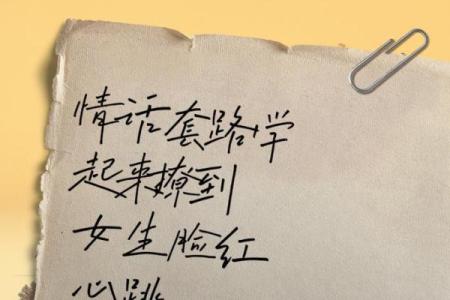 情话套路学
起来撩到
女生脸红
心跳